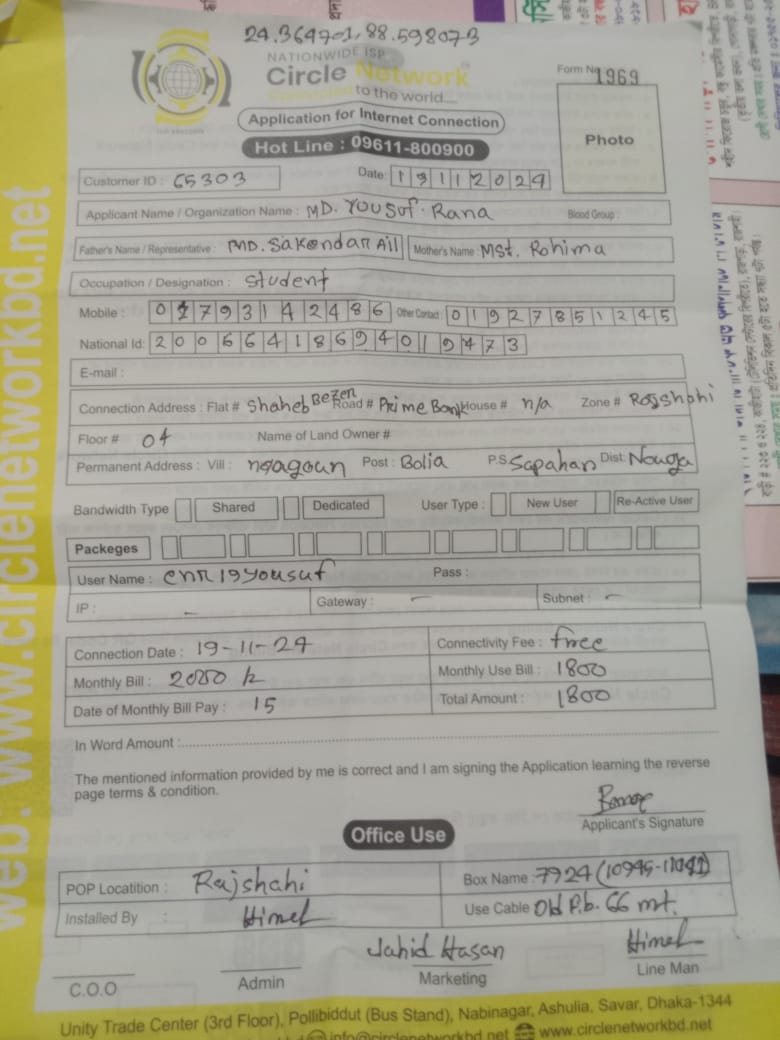 24.364701,88.598073
NATIONWIDE ISP
Circle Network
Connected to the world....
Form No: 1969
Application for Internet Connection
Hot Line : 09611-800900
Photo
Customer ID : 65303
Date: 19112024
Applicant Name / Organization Name : MD. Yousuf Rana Blood Group :
Father's Name / Representative : MD. Sakendar Ali Mother's Name : Mst. Rohima
Occupation / Designation : Student
Mobile : 01793142486 Other Contact : 01927851245
National Id: 20066418694019473
E-mail :
Connection Address : Flat # Shaheb Bezen Road # Prime Bank House # n/a Zone # Rajshahi
Floor # 04 Name of Land Owner #
Permanent Address : Vill : Post : Bolia P.S Sapahar Dist: Nouga
Bandwidth Type Shared Dedicated User Type : New User Re-Active User
Packeges
User Name : enr19yousuf Pass :
IP : - Gateway : - Subnet : -
Connection Date : 19-11-24 Connectivity Fee : free
Monthly Bill : 2000 k Monthly Use Bill : 1800
Date of Monthly Bill Pay : 15 Total Amount : 1800
In Word Amount :
The mentioned information provided by me is correct and I am signing the Application learning the reverse
page terms & condition.
Applicant's Signature
Office Use
POP Locatition : Rajshahi Box Name : 7924
Installed By : Himel Use Cable Old P.b. 66 mt.
Jahid Hasan Himel
C.O.O Admin Marketing Line Man
Unity Trade Center (3rd Floor), Pollibiddut (Bus Stand), Nabinagar, Ashulia, Savar, Dhaka-1344
info@circlenetworkbd.net www.circlenetworkbd.net
web: www.circlenetworkbd.net